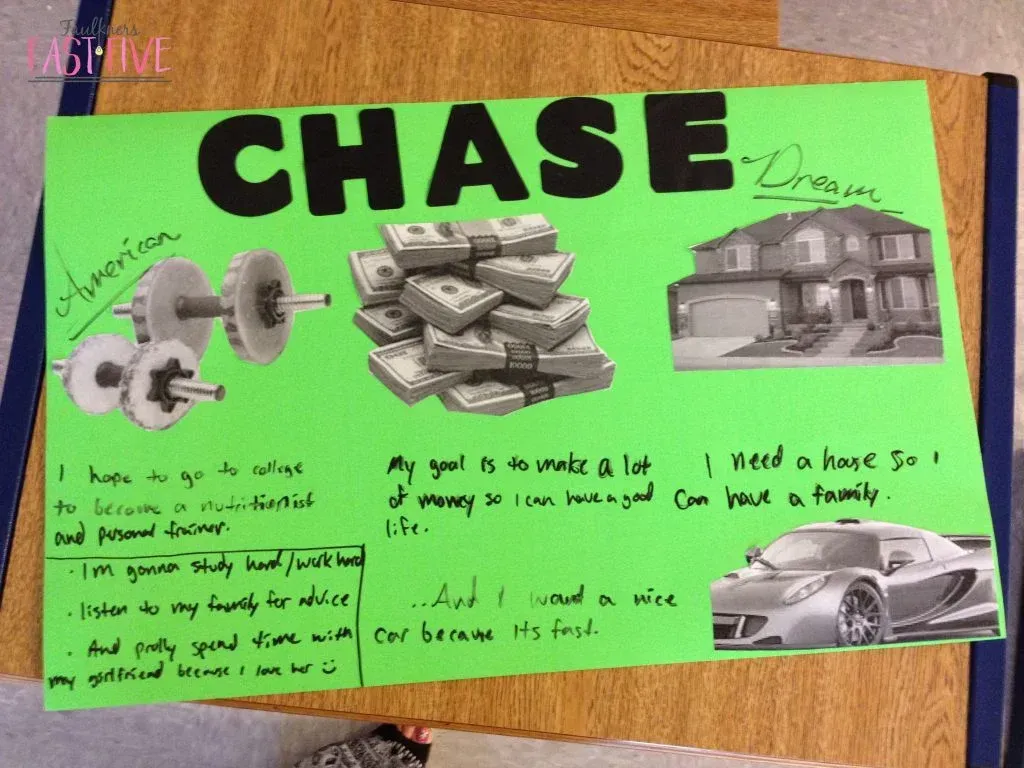 Faulkner's
FAST FIVE
CHASE
American
Dream
I hope to go to college
to become a nutritionist
and personal trainer.
· Im gonna study hard/work hard
· listen to my family for advice
· And prolly spend time with
my girlfriend because I love her :)
My goal is to make a lot
of money so I can have a good
life.
I need a house so I
can have a family.
...And I want a nice
car because its fast.
10000